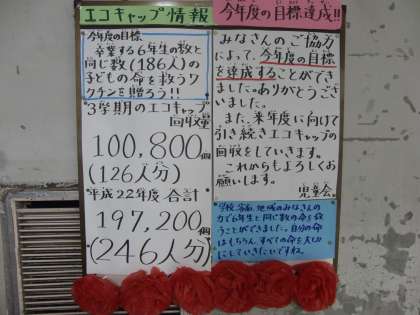 エコキャップ情報
今年度の目標
卒業する6年生の数と
同じ数(186人)の
子どもの命を救うワ
クチンを贈ろう!!
3学期のエコキャップ
回収量
100,800個
(126人分)
平成22年度 合計
197,200個
(246人分)
今年度の目標達成!!
みなさんのご協力
によって、今年度の目標
を達成することができ
ました。ありがとうござ
いました。
また、来年度に向けて
引き続きエコキャップの
回収をしていきます。
これからもよろしく
お願いします。
児童会
学校、家庭、地域のみなさんの
力で6年生と同じ数の命を救
うことができました。自分の命
はもちろん、すべての命を大切
にしていきたいですね。